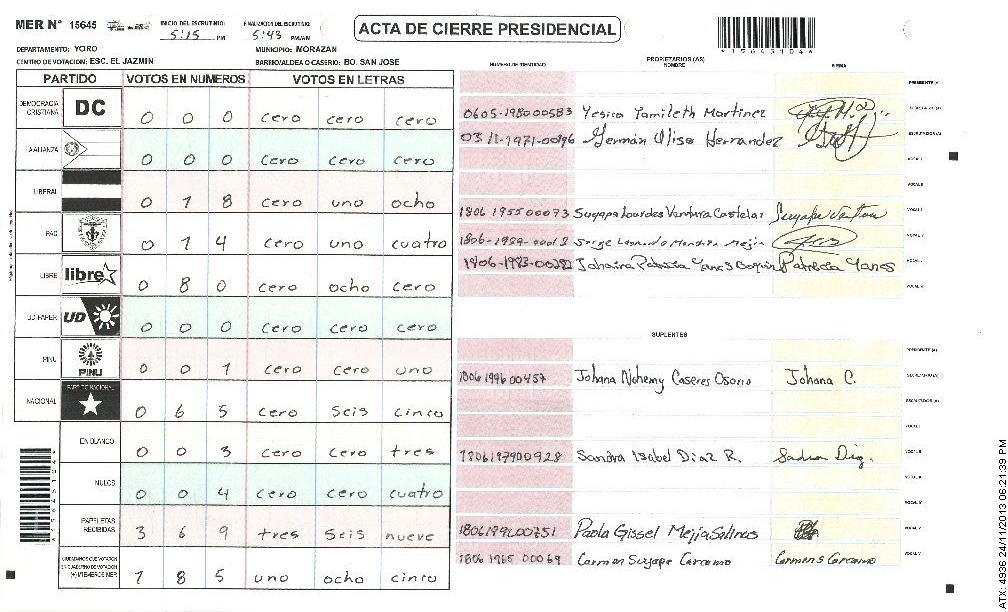 MER N° 15645 INICIO DEL ESCRUTINIO: 5:15 PM FINALIZACION DEL ESCRUTINIO: 5:43 PM/AM ACTA DE CIERRE PRESIDENCIAL
DEPARTAMENTO: YORO MUNICIPIO: MORAZAN
CENTRO DE VOTACION: ESC. EL JAZMIN BARRIO/ALDEA O CASERIO: BO. SAN JOSE
NUMERO DE IDENTIDAD PROPIETARIOS (AS) NOMBRE FIRMA
PARTIDO VOTOS EN NUMEROS VOTOS EN LETRAS
DEMOCRACIA CRISTIANA DC 0 0 0 cero cero cero
LA ALIANZA 0 0 0 cero cero cero
LIBERAL 0 1 8 cero uno ocho
PAC 0 1 4 cero uno cuatro
LIBRE libre 0 8 0 cero ocho cero
UD-FAPER UD 0 0 0 cero cero cero
PINU PINU 0 0 1 cero cero uno
NACIONAL PARTIDO NACIONAL 0 6 5 cero seis cinco
EN BLANCO 0 0 3 cero cero tres
NULOS 0 0 4 cero cero cuatro
PAPELETAS RECIBIDAS 3 6 9 tres seis nueve
CIUDADANOS QUE VOTARON EN CUADERNO DE VOTACION (+) MIEMBROS MER 1 8 5 uno ocho cinco
0605-198000583 Yesica Yamileth Martinez
0311-1971-00396 Germán Ulises Hernandez
1806 195500073 Suyapa Lourdes Ventura Castelar Suyapa Ventura
Jorge Leonardo Mejia
Patricia Yanes
SUPLENTES
1806 1996 00457 Johana Nohemy Caseres Osorio Johana C.
1806197900928 Sandra Isabel Diaz R.
1806199600751 Paola Gissel Mejia Salinas
1806 1965 00069 Carmen Suyapa Carcamo Carmen S Carcamo
ATX: 4936 24/11/2013 06:21:39 PM